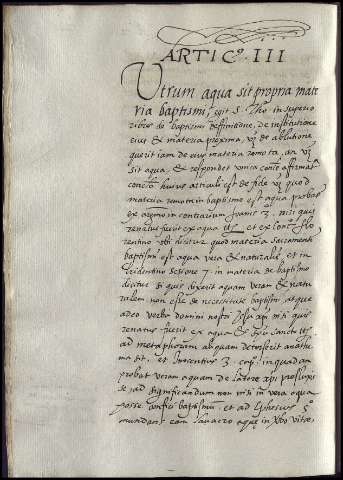 ARTIC.º III
Utrum aqua sit propria mate
ria baptismi, egit S. Tho. in superio
ribus de baptismi deffinitione, de institutione
eius & materia proxima, vz de ablutione
querit iam de eius materia remota, an vz
sit aqua, & respondet unica conc.e affirmat.
concio huius articuli est de fide vz quod
materia remota in baptismi est aqua probat
ex argum.to in contrarium Joannis 3. nisi quis
renatus fuerit ex aqua & ex conc. flo
rentino ubi dicitur quod materia sacramenti
baptismi est aqua vera & naturalis, et in
tridentino sessione 7. in materia de baptismo
dicitur si quis dixerit aquam veram & natu
ralem non esse de necessitate baptismi, atque
adeo verba domini nostri Jesu xpi. nisi quis
renatus fuerit ex aqua & spu sancto
ad metaphoram aliquam detorserit anathe
ma sit. et Inocentius 3. cap. in quadam
probat veram aquam de latere xpi profluxi
se ad significandum non nisi in vera aqua
posse confici baptismum. et ad Ephesios 5.
mundans eam lavacro aquę in verbo vitæ,